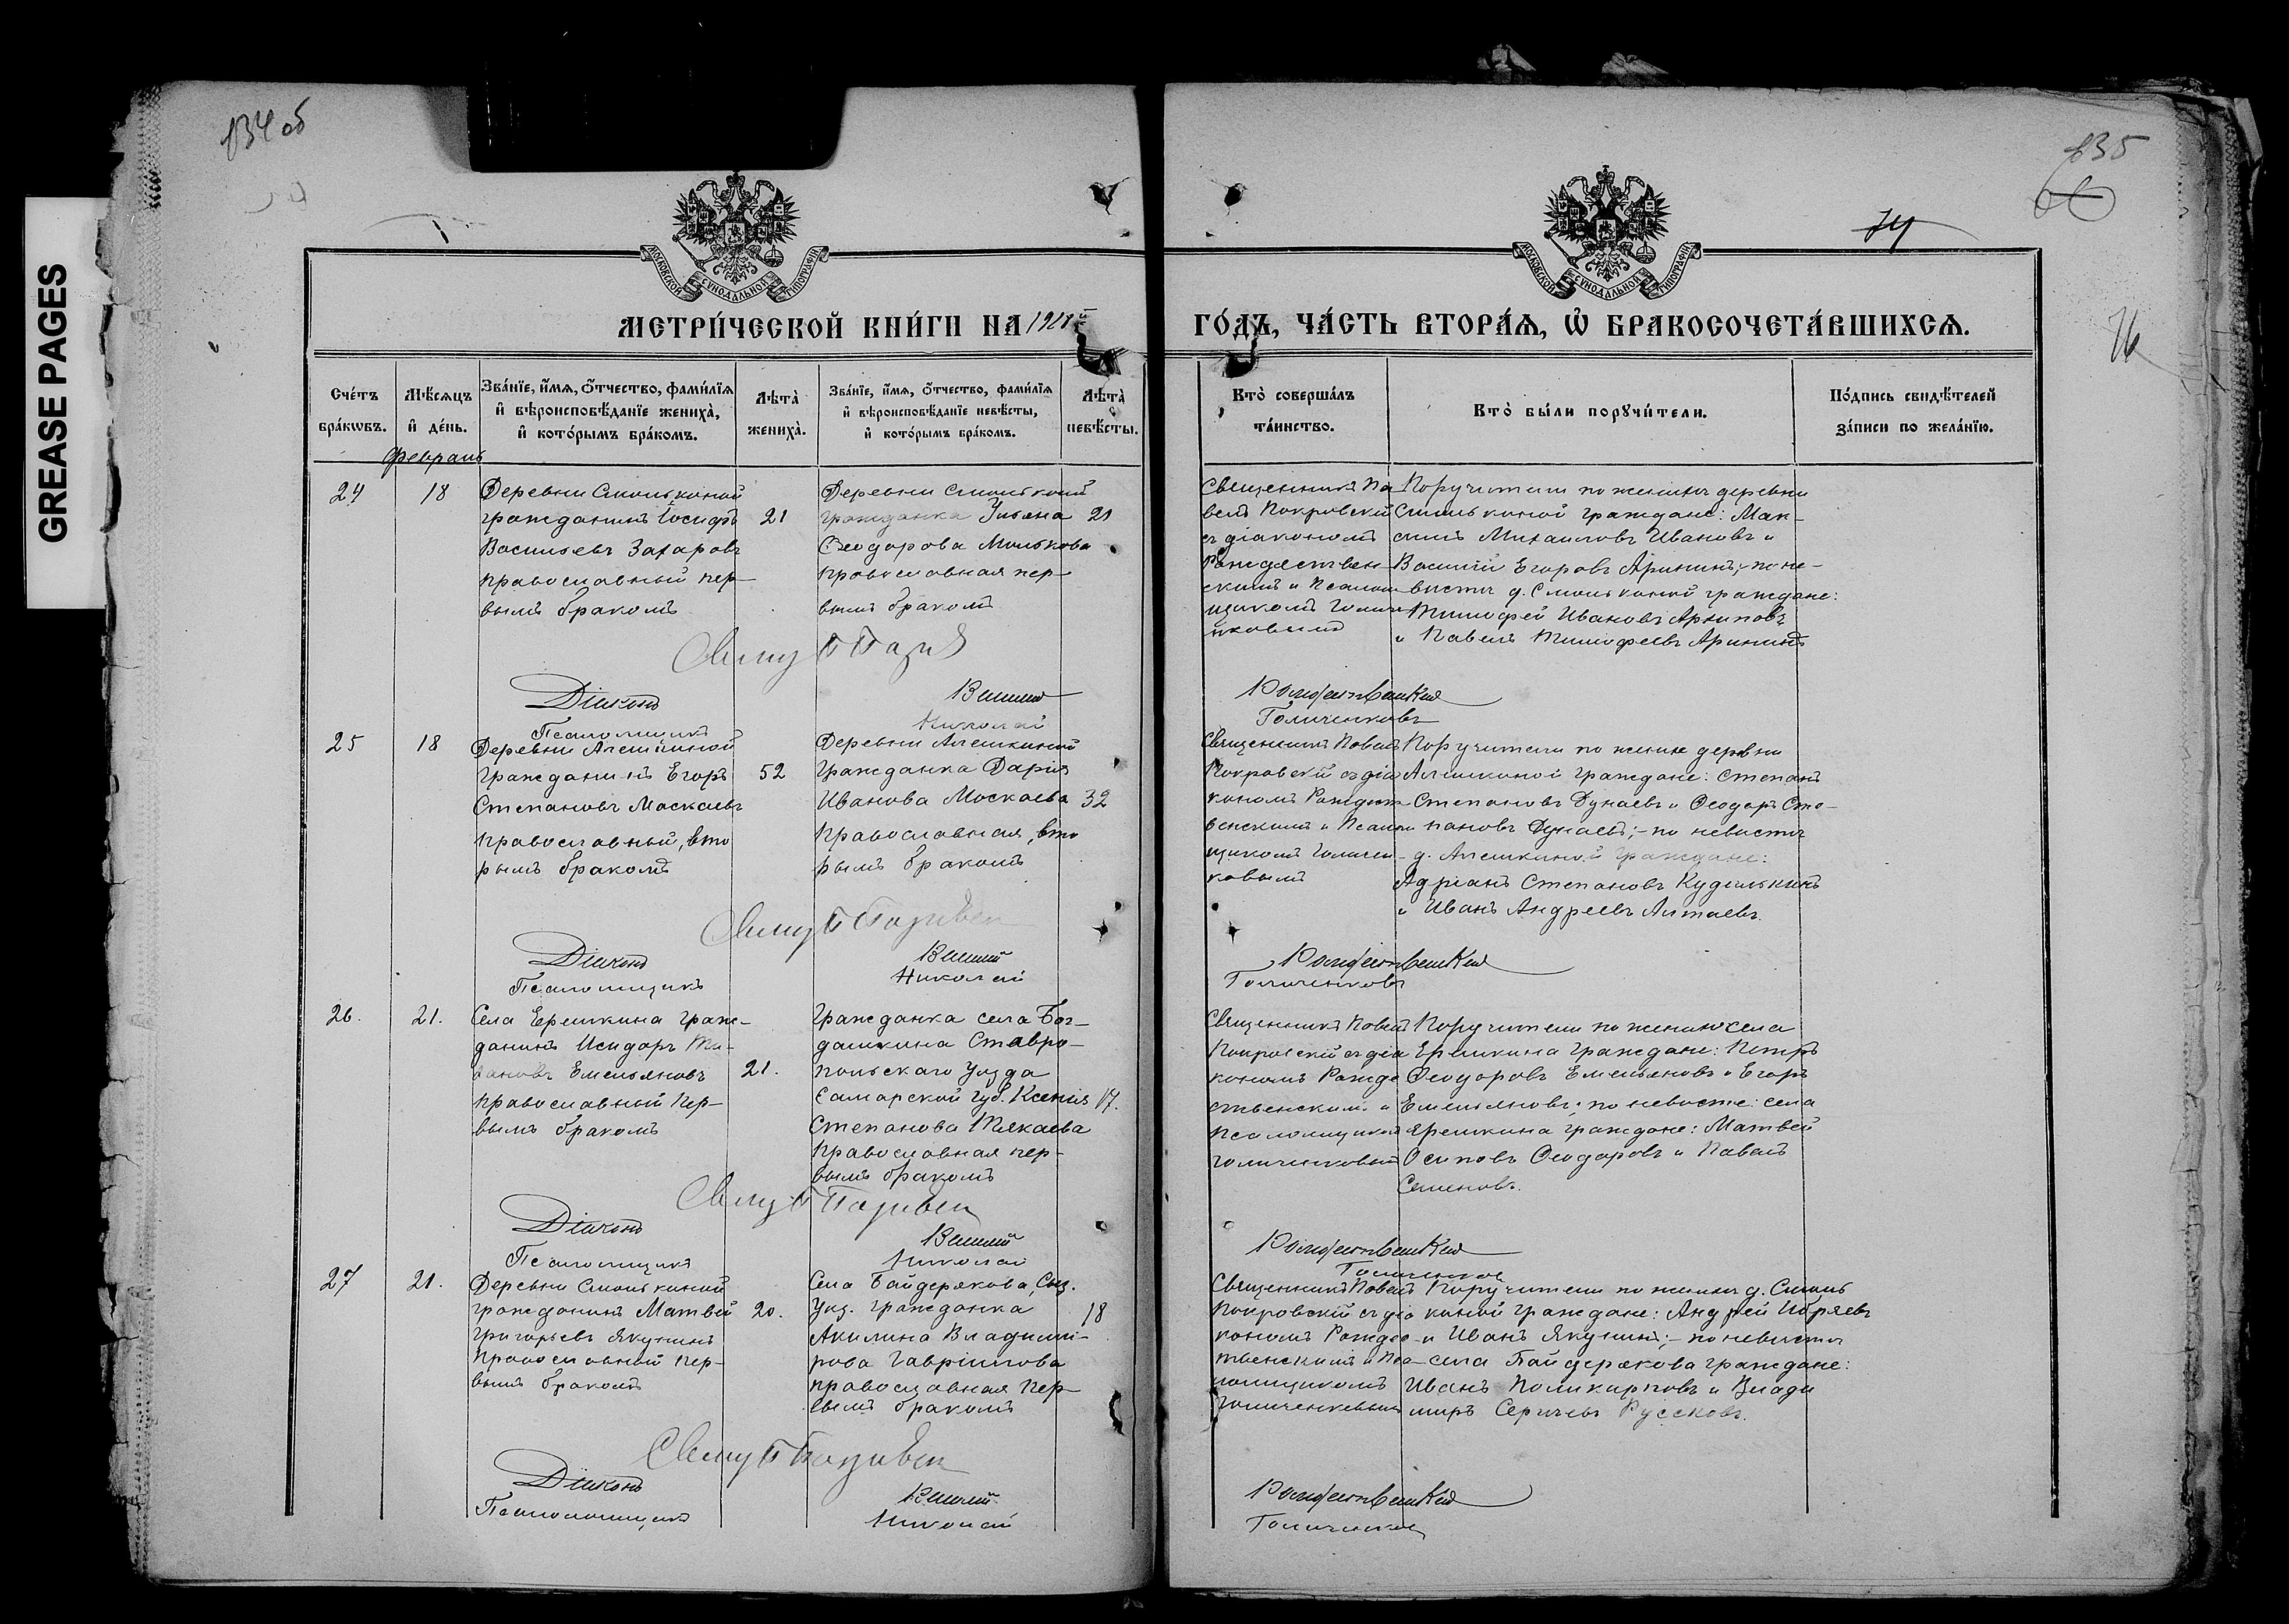 GREASE PAGES
134 об
135
74
76
МОСКОВСКОЙ СУНОДАЛЬНОЙ ТИПОГРАФІИ
МОСКОВСКОЙ СУНОДАЛЬНОЙ ТИПОГРАФІИ
МЕТРИ́ЧЕСКОЙ КНИ́ГИ НА 1918 й
ГО́ДЪ, ЧА́СТЬ ВТОРА́Ѧ, Ѽ БРАКОСОЧЕТА́ВШИХСѦ.
Сче́тъ бра́кѡвъ.
Мѣ́сѧцъ и҆ де́нь.
Зва́нїе, и҆́мѧ, ѻ҆́тчество, фами́лїѧ и҆ вѣроисповѣ́данїе жениха̀, и҆ кото́рымъ бра́комъ.
Лѣта̀ жениха̀.
Зва́нїе, и҆́мѧ, ѻ҆́тчество, фами́лїѧ и҆ вѣроисповѣ́данїе невѣ́сты, и҆ кото́рымъ бра́комъ.
Лѣта̀ невѣ́сты.
Кто̀ соверша́лъ та́инство.
Кто̀ бы́ли порꙋчи́тели.
По́дпись свидѣ́телей за́писи по жела́нїю.
Февраль
24
18
Деревни Смолькиной
гражданинъ Іосифъ
Васильевъ Захаровъ
православный пер-
вымъ бракомъ
21
Деревни Смолькиной
гражданка Ульяна
Ѳеодорова Молькова
православная пер-
вымъ бракомъ
21
Священникъ Па
велъ Покровскій
съ діакономъ
Рождествен
скимъ и Псалом
щикомъ Голиче
нковымъ
Поручители по женихѣ деревни
Смолькиной граждане: Мак-
симъ Михаиловъ Ивановъ и
Василій Егоровъ Арининъ;- по не-
вѣстѣ д. Смолькиной граждане:
Тимофей Ивановъ Архиповъ
и Павелъ Тимофеевъ Арининъ
Діаконъ
Василій
Рождественскій
Псаломщикъ
Николай
Голиченковъ
25
18
Деревни Алешкиной
гражданинъ Егоръ
Степановъ Москаевъ
православный, вто
рымъ бракомъ
52
Деревни Алешкиной
гражданка Дарія
Иванова Москаева
православная, вто
рымъ бракомъ
32
Священникъ Павелъ
Покровскій съ діа
кономъ Рождест
венскимъ и Псалом
щикомъ Голичен
ковымъ
Поручители по жених деревни
Алешкиной граждане: Степанъ
Степановъ Дунаевъ и Ѳеодоръ Сте-
пановъ Дунаевъ;- по невѣстѣ
д. Алешкиной граждане:
Адріанъ Степановъ Кудилькинъ
и Иванъ Андреевъ Алтаевъ.
Діаконъ
Василій
Рождественскій
Псаломщикъ
Николай
Голиченковъ
26.
21.
Села Ерешкина граж-
данинъ Исидоръ
Емельяновъ
православный пер-
вымъ бракомъ
21.
Гражданка села Бог-
дашкина Ставро-
польскаго уѣзда
Самарской губ. Ксенія
Степанова Тякаева
православная пер-
вымъ бракомъ
17.
Священникъ Павелъ
Покровскій съ діа
кономъ Рожде
ственскимъ и
Псаломщикомъ
Голиченковымъ
Поручители по женихѣ села
Ерешкина граждане: Петръ
Ѳеодоровъ Емельяновъ и Егоръ
Емельяновъ; по невѣсте: села
Ерешкина граждане: Матвей
Осиповъ Ѳеодоровъ и Павелъ
Семеновъ.
Діаконъ
Василій
Рождественскій
Псаломщикъ
Николай
Голиченков
27
21.
Деревни Смолькиной
гражданинъ Матвей
Григорьевъ Якунинъ
православный пер-
вымъ бракомъ
20.
Села Байдерякова, Сыз.
уѣз. гражданка
Акилина Владими-
рова Гавріилова
православная пер-
вымъ бракомъ
18
Священникъ Павелъ
Покровскій съ діа
кономъ Рождес
твенскимъ и Пса
ломщикомъ
Голиченковымъ
Поручители по женихѣ д. Смоль
киной граждане: Андрей Ибряевъ
и Иванъ Якунинъ;- по невѣстѣ
села Байдерякова граждане:
Иванъ Поликарповъ и Влади
миръ Сергеевъ Руссковъ.
Діаконъ
Василій
Рождественскій
Псаломщикъ
Николай
Голиченков